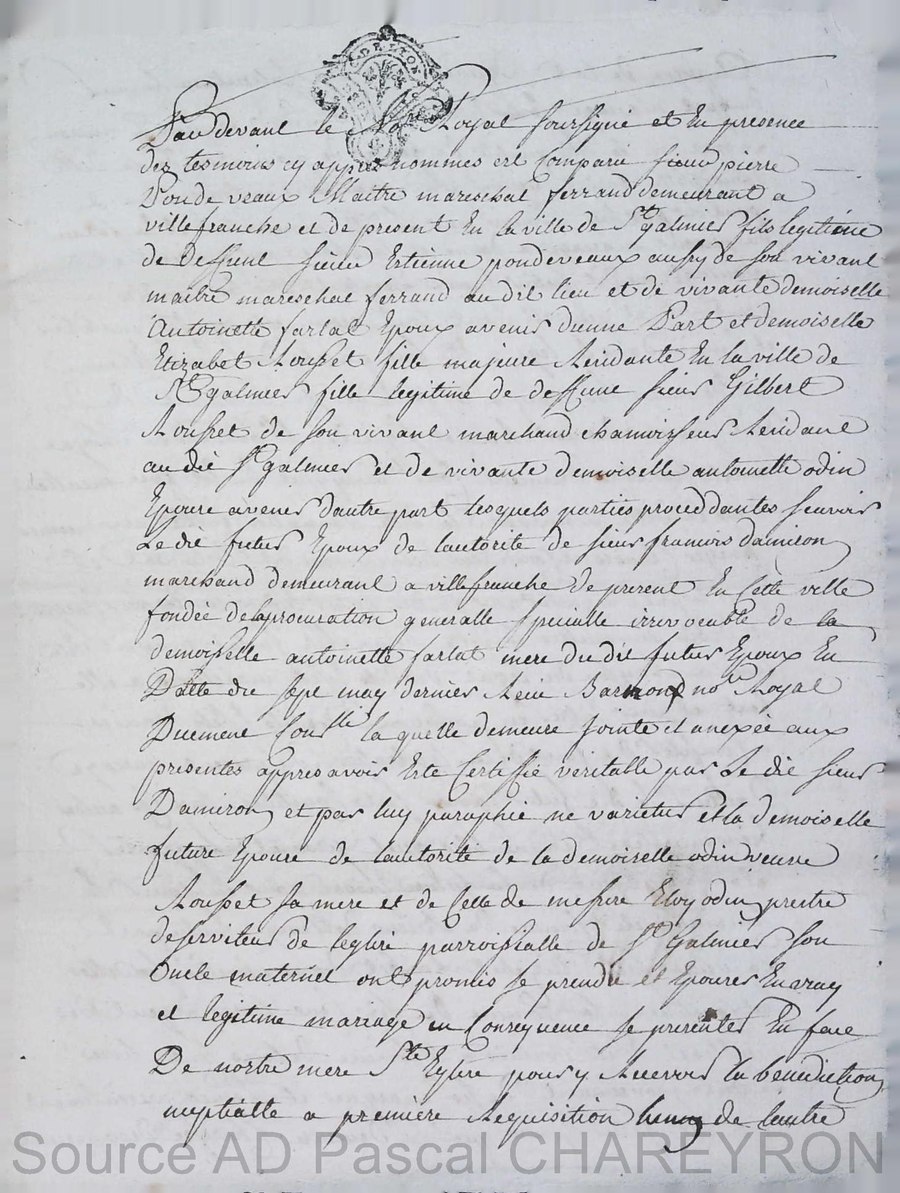 DE LYON
Par devant le No.re Royal soussigné et En presence
des tesmoins cy appres nommes est Comparu sieur pierre
Pondeveaux Maitre mareschal ferrand demeurant a
villefranche et de present En la ville de St galmier fils legitime
de deffunt sieur Estienne pondeveaux aussy de son vivant
maitre mareschal ferrand au dit lieu et de vivante demoiselle
Antoinette farlat Epoux avenir dunne Part et demoiselle
Elizabet Rousset fille majeure Residante En la ville de
St galmier fille legitime de deffunt sieur Gilbert
Rousset de son vivant marchand chamoisseur Residant
au dit St galmier et de vivante demoiselle antoinette odin
Epouse avenir dautre part lesquels parties proceddantes scavoir
Le dit futur Epoux de lautorité de sieur francois damiron
marchand demeurant a villefranche de present En Cette ville
fondée de la procuration generalle specialle irrevocable de la
demoisselle antoinette farlat mere du dit futur Epoux En
Datte du sept may dernier Receu Barmond no.re Royal
Duement Con.lle la quelle demeure jointe et anexée aux
presentes appres avoir Esté Certiffié veritable par Le dit sieur
Damiron et par luy paraphé ne varietur et la demoiselle
future Epouse de lautorité de la demoiselle odin veuve
Rousset sa mere et de Celle de messire Eloy odin prestre
deserviteur de leglise parroissialle de St Galmier son
Oncle maternel ont promis se prendre et Epouser En vray
et legitime mariage en Consequence se presenter En face
De nostre mere Ste Eglise pour y Recevoir la benediction
nuptialle a premiere Requisition de lautre
Source AD Pascal CHAREYRON